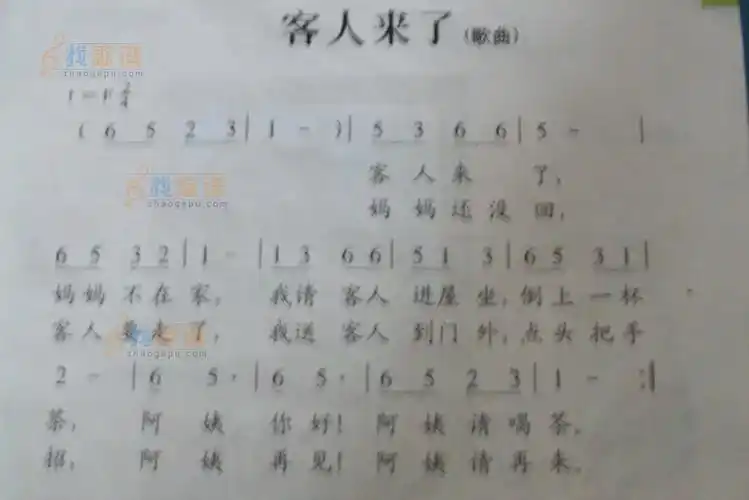 客人来了(歌曲)
找歌谱
zhaogepu.com
1=F 2/4
( 6 5 2 3 | 1 - ) | 5 3 6 6 | 5 - |
找歌谱
zhaogepu.com
客人来了，
妈妈还没回，
6 5 3 2 | 1 - | 1 3 6 6 | 5 1 3 | 6 5 3 1 |
妈妈不在家，我请客人进屋坐，倒上一杯
客人要走了，我送客人到门外，点头把手
找歌谱
zhaogepu.com
2 - | 6 5· | 6 5· | 6 5 2 3 | 1 - :||
茶，阿姨你好！阿姨请喝茶。
招，阿姨再见！阿姨请再来。